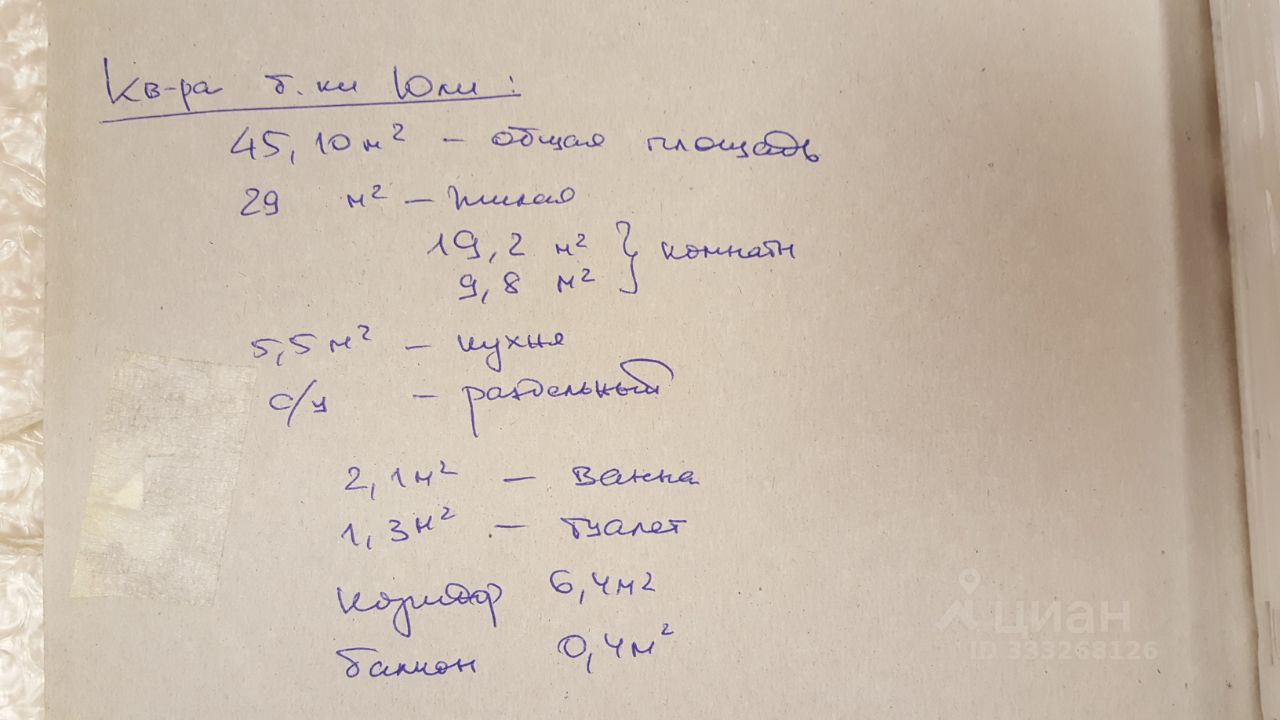 Кв-ра б.ки Юли:
45,10 м² - общая площадь
29 м² - жилая
19,2 м² } комнаты
9,8 м²
5,5 м² - кухня
с/у - раздельный
2,1 м² - ванна
1,3 м² - туалет
коридор 6,4 м²
балкон 0,4 м²
циан
ID 333268126